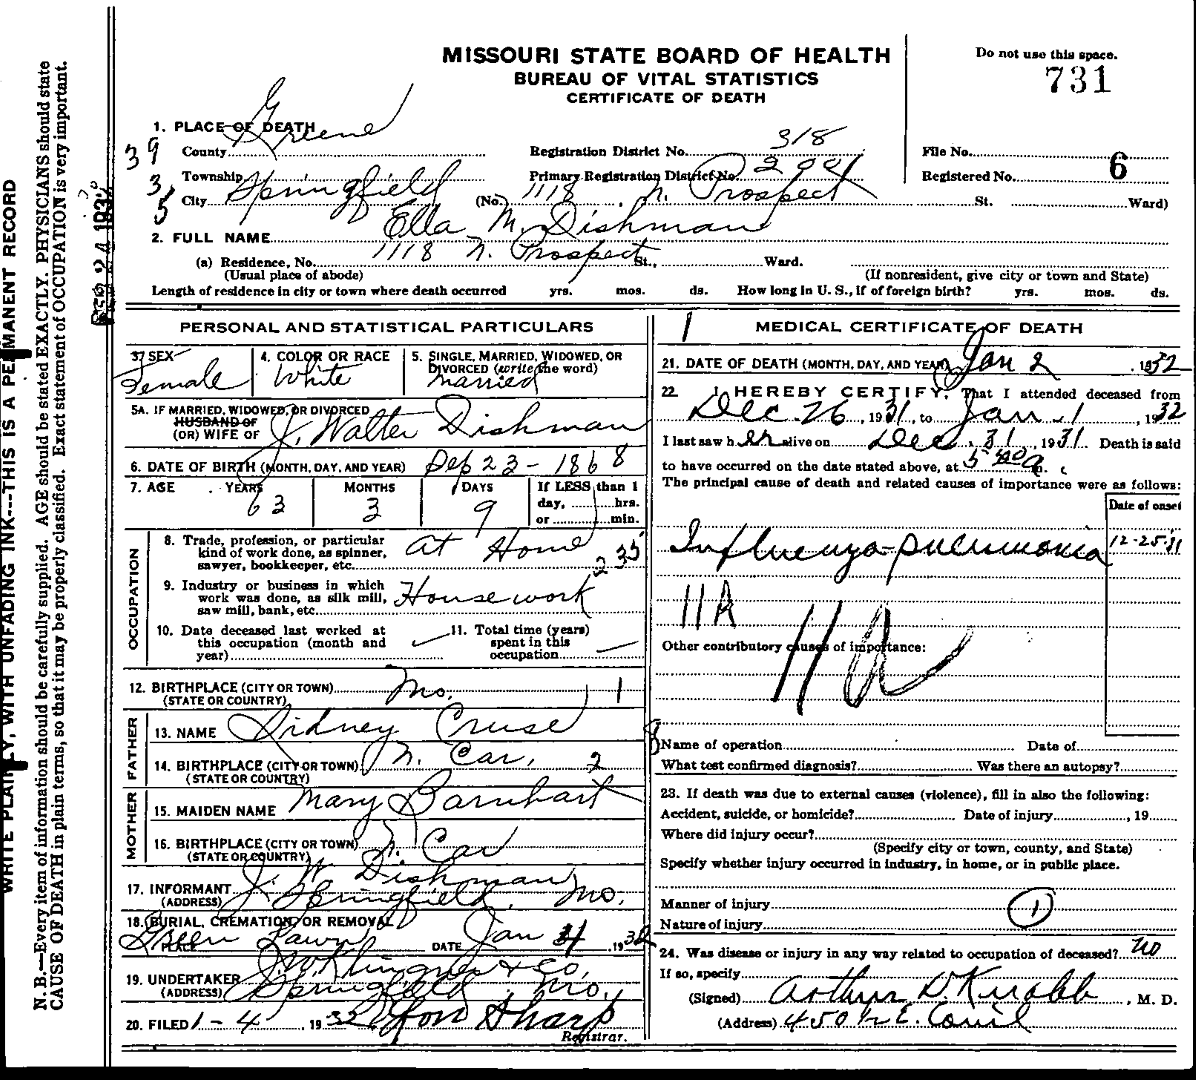 MISSOURI STATE BOARD OF HEALTH
BUREAU OF VITAL STATISTICS
CERTIFICATE OF DEATH
Do not use this space.
731
1. PLACE OF DEATH
County Greene
Registration District No. 318
File No.
Township
Primary Registration District No.
Registered No. 6
City Springfield (No. 1118 N. Prospect St. Ward)
39
3
5
2. FULL NAME Ella M. Dishman
(a) Residence, No. 1118 N. Prospect St., Ward.
(Usual place of abode) (If nonresident, give city or town and State)
Length of residence in city or town where death occurred yrs. mos. ds. How long in U. S., if of foreign birth? yrs. mos. ds.
PERSONAL AND STATISTICAL PARTICULARS
3. SEX Female
4. COLOR OR RACE White
5. SINGLE, MARRIED, WIDOWED, OR DIVORCED (write the word) Married
5A. IF MARRIED, WIDOWED, OR DIVORCED
HUSBAND OF
(OR) WIFE OF J. Walter Dishman
6. DATE OF BIRTH (MONTH, DAY, AND YEAR) Sep 23 - 1868
7. AGE YEARS 63 MONTHS 3 DAYS 9 If LESS than 1 day, hrs. or min.
OCCUPATION
8. Trade, profession, or particular
kind of work done, as spinner,
sawyer, bookkeeper, etc. At Home
235
9. Industry or business in which
work was done, as silk mill,
saw mill, bank, etc. Housework
10. Date deceased last worked at
this occupation (month and
year)
11. Total time (years)
spent in this
occupation
12. BIRTHPLACE (CITY OR TOWN) Mo. 1
(STATE OR COUNTRY)
FATHER
13. NAME Sidney Cruse
14. BIRTHPLACE (CITY OR TOWN) N. Car. 2
(STATE OR COUNTRY)
MOTHER
15. MAIDEN NAME Mary Barnhart
16. BIRTHPLACE (CITY OR TOWN) N. Car
(STATE OR COUNTRY)
17. INFORMANT J. W. Dishman
(ADDRESS) Springfield, Mo.
18. BURIAL, CREMATION, OR REMOVAL
PLACE Green Lawn DATE Jan 4 1932
19. UNDERTAKER J. W. Klingner & Co.
(ADDRESS) Springfield, Mo.
20. FILED 1-4, 1932 Sharp
Registrar.
1 MEDICAL CERTIFICATE OF DEATH
21. DATE OF DEATH (MONTH, DAY, AND YEAR) Jan 2, 1932
22. I HEREBY CERTIFY, That I attended deceased from
Dec. 26, 1931, to Jan. 1, 1932
I last saw her alive on Dec. 31, 1931 Death is said
to have occurred on the date stated above, at m.
The principal cause of death and related causes of importance were as follows:
Date of onset
Influenza-pneumonia 12-25-31
11A
11a
Other contributory causes of importance:
8
Name of operation Date of
What test confirmed diagnosis? Was there an autopsy?
23. If death was due to external causes (violence), fill in also the following:
Accident, suicide, or homicide? Date of injury , 19
Where did injury occur?
(Specify city or town, county, and State)
Specify whether injury occurred in industry, in home, or in public place.
Manner of injury
1
Nature of injury
24. Was disease or injury in any way related to occupation of deceased? no
If so, specify
(Signed) Arthur , M. D.
(Address) 450 E.
WRITE PLAINLY, WITH UNFADING INK---THIS IS A PERMANENT RECORD
N. B.—Every item of information should be carefully supplied. AGE should be stated EXACTLY. PHYSICIANS should state
CAUSE OF DEATH in plain terms, so that it may be properly classified. Exact statement of OCCUPATION is very important.